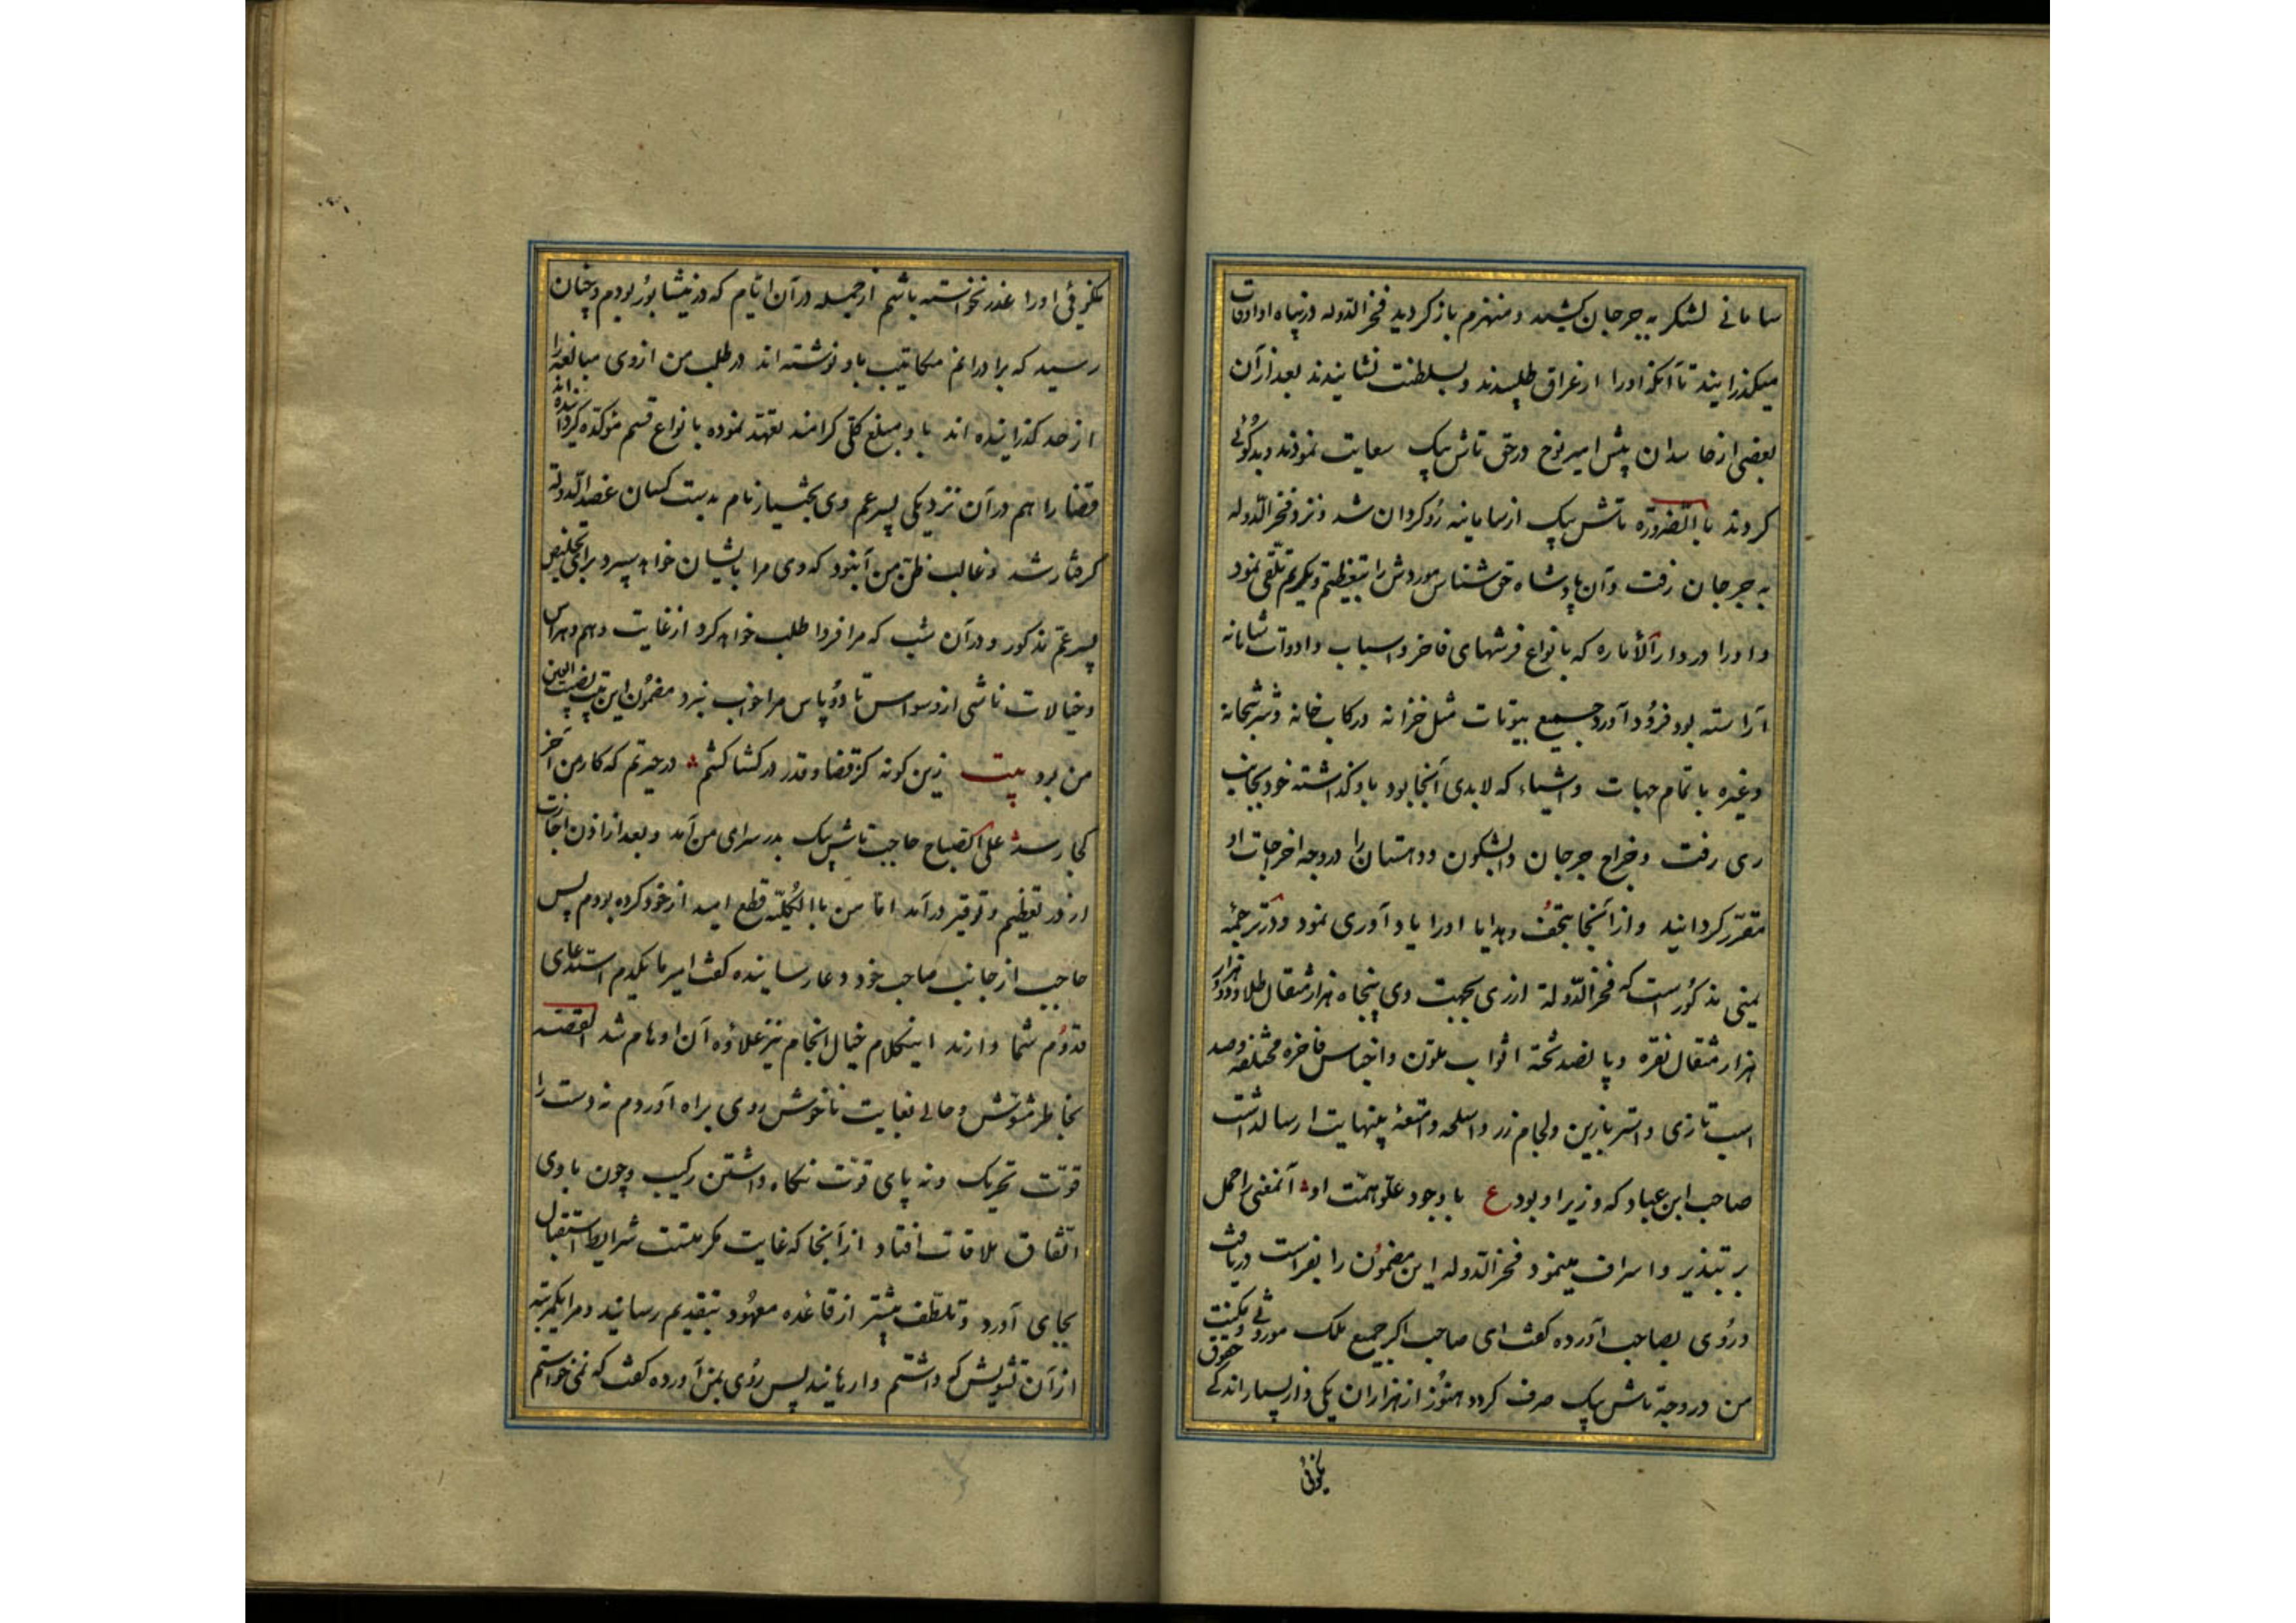 سامانی لشکر به جرجان کشید و منهزم بازکردید فخرالدوله در پناه او اوقات
میکذرانید تا آنکه او را از عراق طلبیدند و بسلطنت نشانیدند بعد از آن
بعضی از حاسدان پیش امیر نوح در حق تاش بیک سعایت نمودند و بدکوئی
کردند باالضروره تاش بیک از سامانیه روکردان شد و نزد فخرالدوله
به جرجان رفت و آن پادشاه حق شناس موردش را بتعظیم و تکریم تلقی نمود
و او را در دارالاماره که بانواع فرشهای فاخر و اسباب و ادوات شاهانه
آراسته بود فرود آورد و جمیع بیوتات مثل خزانه و رکاب خانه و شربتخانه
و غیره با تمام جهات و اشیاء که لابدی آنجا بود باو کذاشته خود بجانب
ری رفت و خراج جرجان و ابسکون و دهستان را در وجه اخراجات او
مقرر کردانید و از آنجا بتحف و هدایا او را یاد آوری نمود و در ترجمه
یمنی مذکور است که فخرالدوله از ری بجهت وی پنجاه هزار مثقال طلا و دو هزار
هزار مثقال نقره و پانصد تخته اثواب ملون و اجناس فاخره مختلفه و صد
اسب تازی و استر بازین و لجام زر و اسلحه و امتعه بینهایت ارسالداشت
صاحب ابن عباد که وزیر او بود ع با وجود علو همت او آنمعنی را حمل
بر تبذیر و اسراف مینمود فخرالدوله این مضمون را بفراست دریافت
و روی بصاحب آورده کفت ای صاحب اکر جمیع ملک موروثی و مکنت حقوق
من در وجه تاش بیک صرف کردد هنوز از هزاران یکی و از بسیار اندکی
نکوئی
نکوئی او را عذر نخواسته باشم از جمله در آن ایام که در نیشابور بودم و چنان
رسید که برادرانم مکاتیب باو نوشته اند در طلب من از وی مبالغه را
از حد کذرانیده اند باو مبلغ کلی کرامند تعهد نموده بانواع قسم مؤکده کردانیده اند
قضا را هم در آن نزدیکی پسر عم وی بختیار نام بدست کسان عضدالدوله
کرفتار شد و غالب ظن من آنبود که وی مرا بایشان خواهد سپرد برای تخلیص
پسر عم مذکور و در آن شب که مرا فردا طلب خواهد کرد از غایت وهم و هراس
و خیالات ناشی از وسواس تا دو پاس مرا خواب نبرد مضمون این بیت نصب العین
من بود بیت زین کونه کز قضا و قدر در کشاکشم درحیرتم که کار من آخر
کجا رسد علی الصباح حاجب تاش بیک بدر سرای من آمد و بعد از اذن اجازت
از در تعظیم و توقیر درآمد اما من باالکلیه قطع امید از خود کرده بودم پس
حاجب از جانب صاحب خود دعا رسانیده کفت امیر مایکدم استدعای
قدوم شما دارند اینکلام خیال انجام نیز علاوه آن اوهام شد القصه
بخاطر مشوش و حالی بغایت ناخوش روی براه آوردم نه دست را
قوت تحریک و نه پای قوت نکاه داشتن رکیب و چون با وی
اتفاق ملاقات افتاد از آنجا که غایت مکرمتست شرایط استقبال
بجای آورد و تلطف بیشتر از قاعده معهود بتقدیم رسانید و مرا یکمرتبه
از آن تشویش که داشتم وارهانید پس روی بمن آورده کفت که نمی خواستم